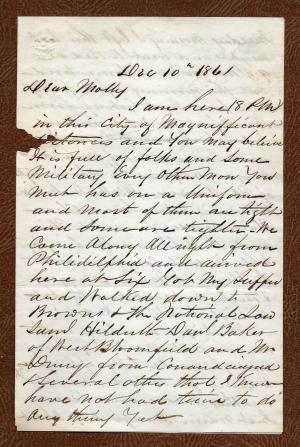 Dec 10th 1861
Dear Molly
I am here 8 PM
in this City of Magnifficent
Distances and You may believe
it is full of folks and some
Military Evry Other Man You
Meet has on a Uniform
and most of them are tight
and some are tighter. We
Came Along All right from
Philidelphia and arrived
here at Six Got My Supper
and Walked down to
Browns & the National Saw
Saml Hildreth Danl Baker
of West Bloomfield and Mr
from Canandaigua
& several Others that I Knew
have not had time to do
any thing Yet